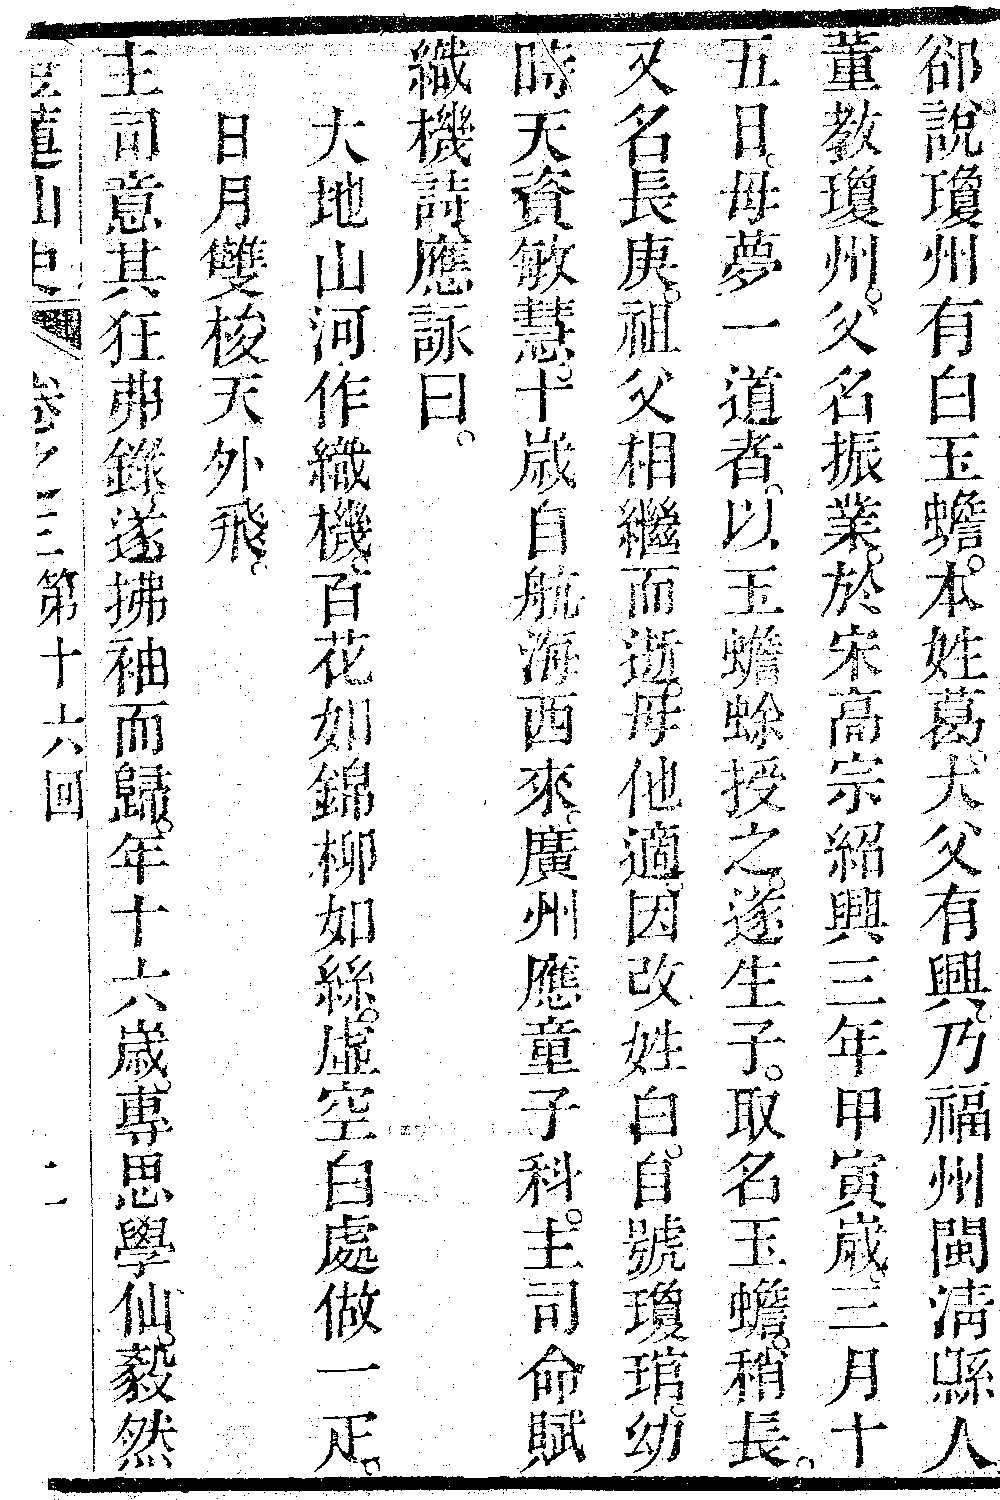 卻說瓊州有白玉蟾。本姓葛。大父有興。乃福州閩清縣人
董教瓊州。父名振業。於宋高宗紹興三年甲寅歲。三月十
五日。母夢一道者。以玉蟾蜍授之。遂生子。取名玉蟾。稍長。
又名長庚。祖父相繼而逝。母他適。因改姓白。自號瓊琯。幼
時天資敏慧。十歲自航海西來。廣州應童子科。主司命賦
織機詩。應詠曰。
大地山河作織機。百花如錦柳如絲。虛空白處做一疋。
日月雙梭天外飛。
主司意其狂。弗錄。遂拂袖而歸。年十六歲。專思學仙。毅然
卷之三第十六回 二